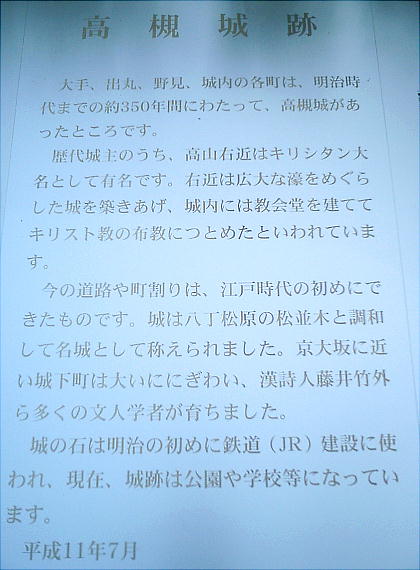 高槻城跡
大手、出丸、野見、城内の各町は、明治時
代までの約350年間にわたって、高槻城があ
ったところです。
歴代城主のうち、高山右近はキリシタン大
名として有名です。右近は広大な濠をめぐら
した城を築きあげ、城内には教会堂を建てて
キリスト教の布教につとめたといわれていま
す。
今の道路や町割りは、江戸時代の初めにで
きたものです。城は八丁松原の松並木と調和
して名城として称えられました。京大坂に近
い城下町は大いににぎわい、漢詩人藤井竹外
ら多くの文人学者が育ちました。
城の石は明治の初めに鉄道（JR）建設に使
われ、現在、城跡は公園や学校等になってい
ます。
平成11年7月